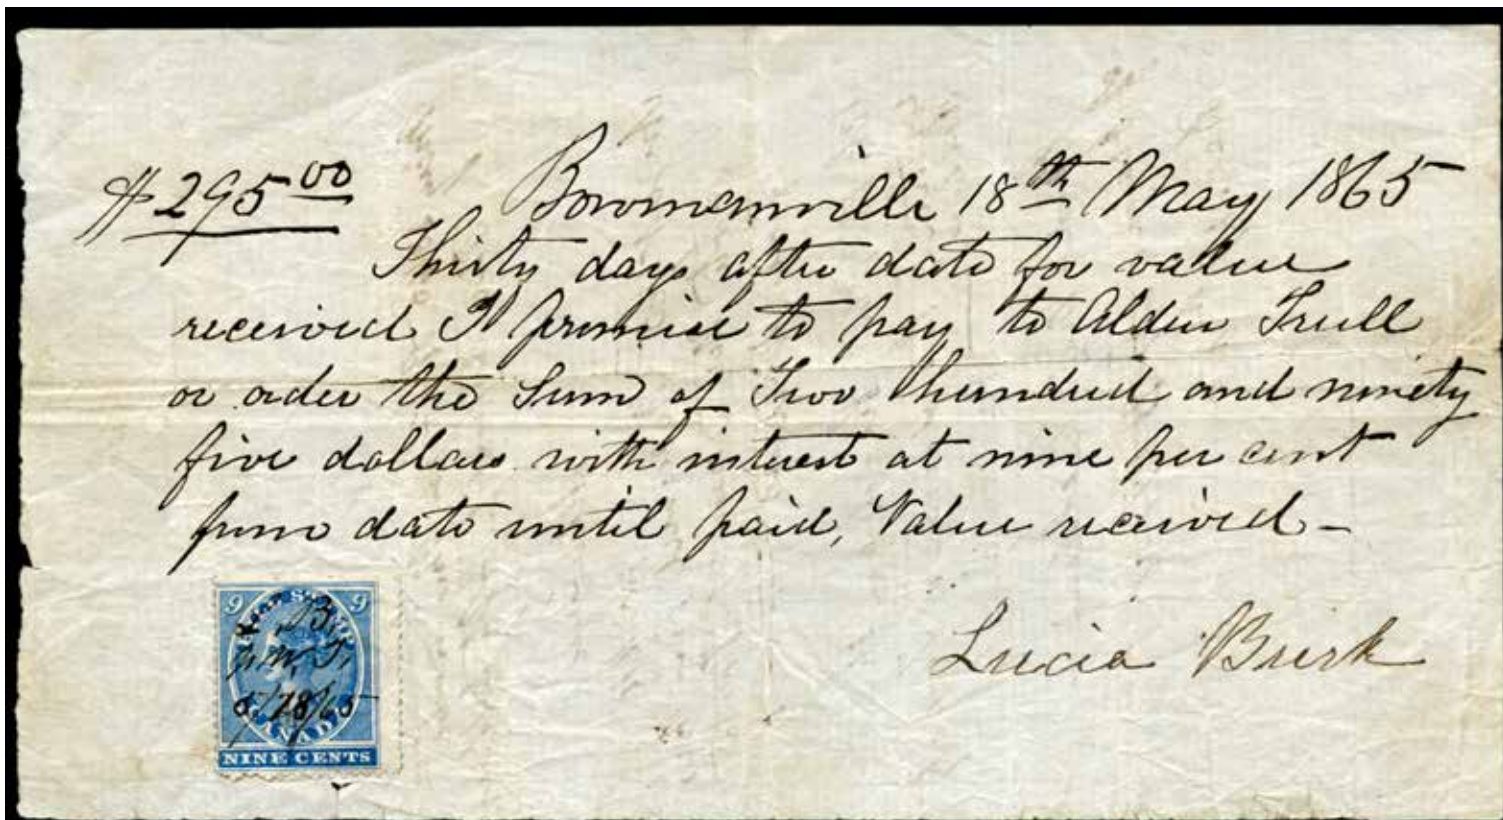 $295 00
Bowmanville 18th May 1865
Thirty days after date for value
received I promise to pay to Alden Trull
or order the Sum of Two hundred and ninety
five dollars with interest at nine per cent
from date until paid, Value received –
Lucia Burk
9 9
L. B.
5/18/65
CANADA
NINE CENTS